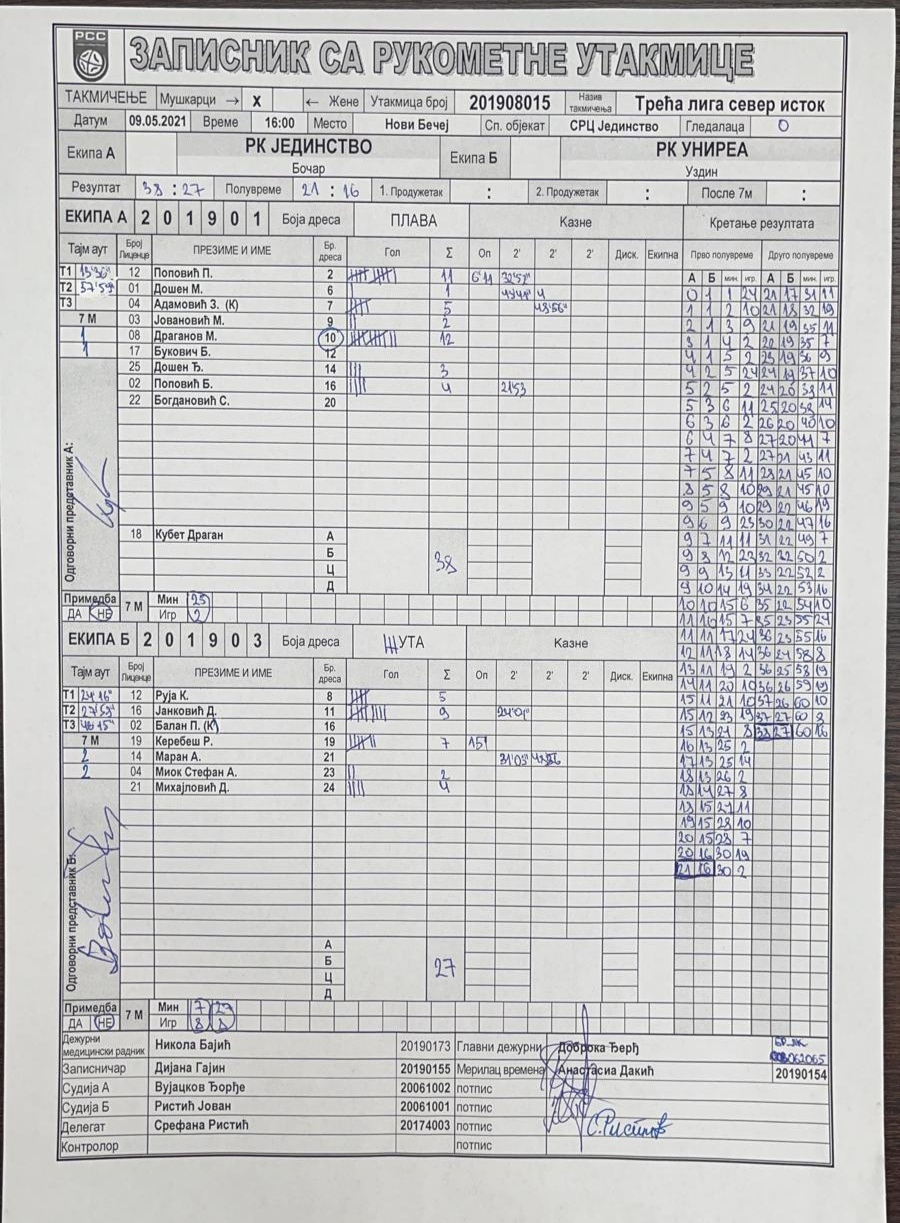 РСС
ЗАПИСНИК СА РУКОМЕТНЕ УТАКМИЦЕ
ТАКМИЧЕЊЕ Мушкарци → X ← Жене Утакмица број 201908015 Назив такмичења Трећа лига север исток
Датум 09.05.2021 Време 16:00 Место Нови Бечеј Сп. објекат СРЦ Јединство Гледалаца 0
Екипа А РК ЈЕДИНСТВО Екипа Б РК УНИРЕА
Бочар Уздин
Резултат 38 : 27 Полувреме 21 : 16 1. Продужетак : 2. Продужетак : После 7м :
ЕКИПА А 2 0 1 9 0 1 Боја дреса ПЛАВА Казне Кретање резултата
Тајм аут Број Лиценце ПРЕЗИМЕ И ИМЕ Бр. дреса Гол Σ Оп 2' 2' 2' Диск. Екипна Прво полувреме Друго полувреме
А Б мин. игр. А Б мин. игр.
Т1 13'36" 12 Поповић П. 2 11 6'11 32'52"
Т2 57'59" 01 Дошен М. 6 1
Т3 04 Адамовић З. (К) 7 5 43'56"
7 М 03 Јовановић М. 9 2
1 08 Драганов М. 10 12
1 17 Букович Б. 12
25 Дошен Ђ. 14 3
02 Поповић Б. 16 4 2153
22 Богдановић С. 20
0 1 1 24 21 17 31 11
1 1 2 10 21 18 32 19
2 1 3 9 21 19 35 11
3 1 4 2 22 19 35 7
4 1 5 2 23 19 36 9
4 2 5 24 24 19 37 10
5 2 5 2 24 20 38 11
5 3 6 11 25 20 38 14
6 3 6 2 26 20 40 10
6 4 7 8 27 20 41 7
7 4 7 2 27 21 43 11
7 5 8 11 28 21 45 10
8 5 8 10 29 21 45 10
9 5 9 10 29 22 46 19
9 6 9 23 30 22 47 16
9 7 11 11 31 22 49 7
9 8 12 23 32 22 50 2
9 9 13 11 33 22 52 2
9 10 14 19 34 22 53 16
10 10 15 6 35 22 54 10
11 10 15 7 35 23 55 24
11 11 17 24 36 23 55 16
12 11 18 14 36 24 58 8
13 11 19 2 36 25 58 19
14 11 20 10 36 26 59 19
15 11 21 10 37 26 60 10
15 12 23 19 37 27 60 8
15 13 24 8 38 27 60 16
16 13 25 2
17 13 25 14
18 13 26 2
18 14 27 8
18 15 27 11
19 15 28 10
20 15 28 7
20 16 30 19
21 16 30 2
Одговорни представник А:
18 Кубет Драган А
Б 38
Ц
Д
Примедба 7 М Мин 25
ДА НЕ Игр 2
ЕКИПА Б 2 0 1 9 0 3 Боја дреса ЖУТА Казне
Тајм аут Број Лиценце ПРЕЗИМЕ И ИМЕ Бр. дреса Гол Σ Оп 2' 2' 2' Диск. Екипна
Т1 12 Руја К. 8 5
Т2 27'59" 16 Јанковић Д. 11 9 24'01"
Т3 46'15" 02 Балан П. (К) 16
7 М 19 Керебеш Р. 19 7
2 14 Маран А. 21 31'05"
2 04 Миок Стефан А. 23 2
21 Михајловић Д. 24 4
Одговорни представник Б:
А
Б 27
Ц
Д
Примедба 7 М Мин 7 27
ДА НЕ Игр 8 8
Дежурни медицински радник Никола Бајић 20190173 Главни дежурни Доброка Ђерђ
Записничар Дијана Гајин 20190155 Мерилац времена Анастасиа Дакић 20190154
Судија А Вујацков Ђорђе 20061002 потпис
Судија Б Ристић Јован 20061001 потпис
Делегат Срефана Ристић 20174003 потпис
Контролор потпис